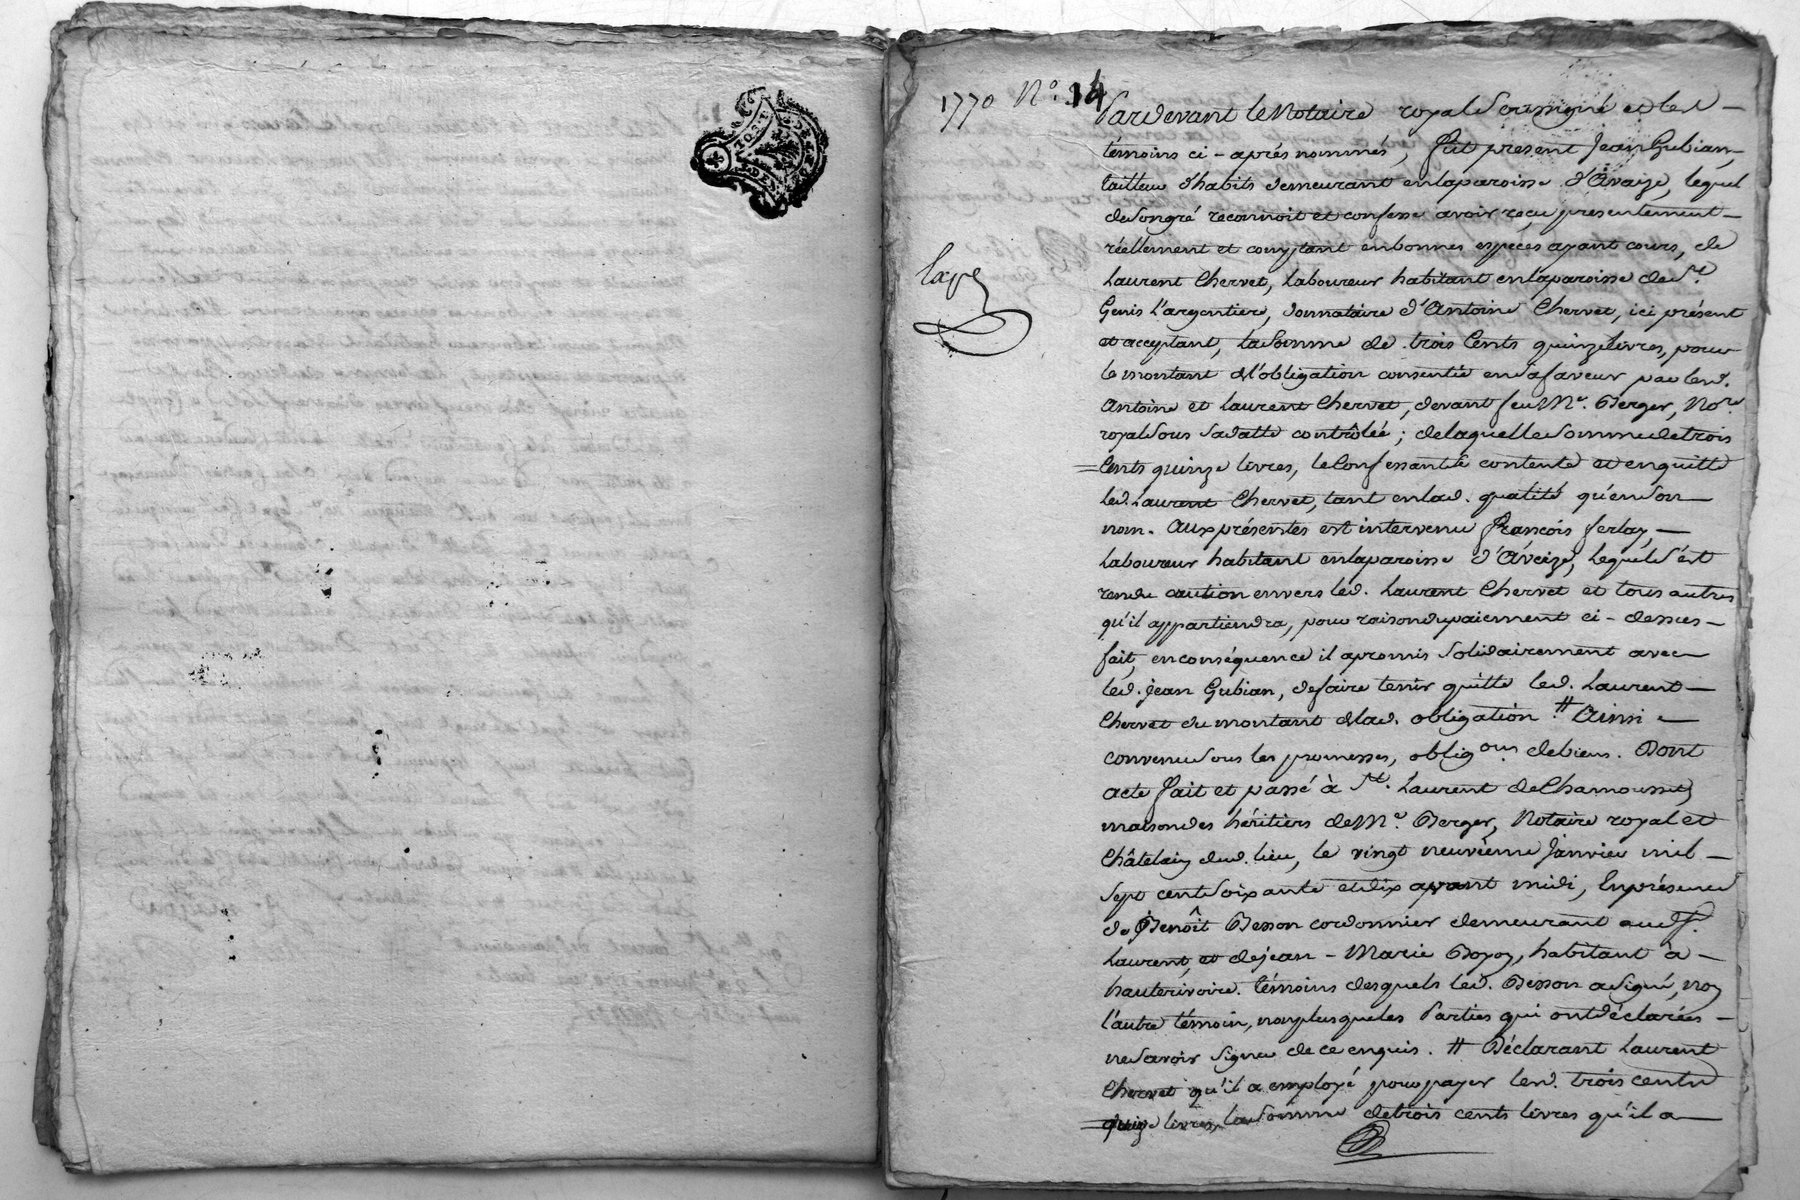 1770 N.º 14
Pardevant le Notaire royal Soussigné et les
témoins ci-après nommés, fut présent Jean Gubian,
tailleur d'habits demeurant en la paroisse d'Avaize, lequel
de son gré reconnoit et confesse avoir reçu presentement
réellement et comptant en bonnes especes ayant cours, de
Laurent Chervet, Laboureur habitant en la paroisse de St.
Genis l'argentiere, donnataire d'Antoine Chervet, ici présent
et acceptant, la somme de trois Cents quinze livres, pour
le montant de l'obligation consentie en sa faveur par lesd.
Antoine et Laurent Chervet, devant feu Me. Berger, Nore.
royal sous sa datte contrôlée; de laquelle somme de trois
Cents quinze livres, le Confessant se contente et en quitte
led. Laurent Chervet, tant en lad. qualité qu'en son
nom. Aux présentes est intervenu françois ferlay,
Laboureur habitant en la paroisse d'Avaize, lequel s'est
rendu caution envers led. Laurent Chervet et tous autres
qu'il appartiendra, pour raison du paiement ci-dessus
fait, en conséquence il a promis solidairement avec
led. Jean Gubian, de faire tenir quitte led. Laurent
Chervet du montant de lad. obligation. # Ainsi
convenu sous les promesses, obligons. de biens. Dont
acte fait et passé à St. Laurent de Chamousset,
maison des héritiers de Me. Berger, Notaire royal et
Châtelain dud. lieu, le vingt neuvième Janvier mil
sept cent soixante et dix avant midi, En présence
de Benoît Besson cordonnier demeurant aud. St.
Laurent, et de jean-Marie Boyon, habitant à
hauterivoire. témoins desquels led. Besson a signé, non
l'autre témoin, non plus que les Parties qui ont déclarées
ne savoir signer de ce enquis. # Déclarant Laurent
Chervet qu'il a employé pour payer lesd. trois cents
quinze livres, la somme de trois cents livres qu'il a